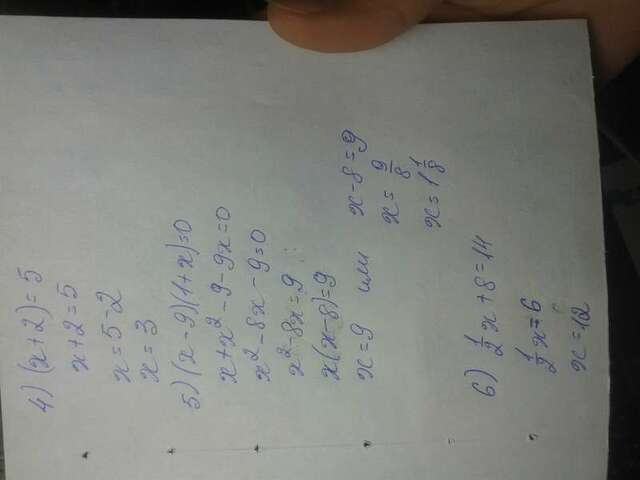 4) (x+2)=5
x+2=5
x=5-2
x=3
5) (x-9)(1+x)=0
x+x²-9-9x=0
x²-8x-9=0
x²-8x=9
x(x-8)=9
x=9 или x-8=9
x=9/8
x=1 1/8
6) 1/2x+8=14
1/2x=6
x=12